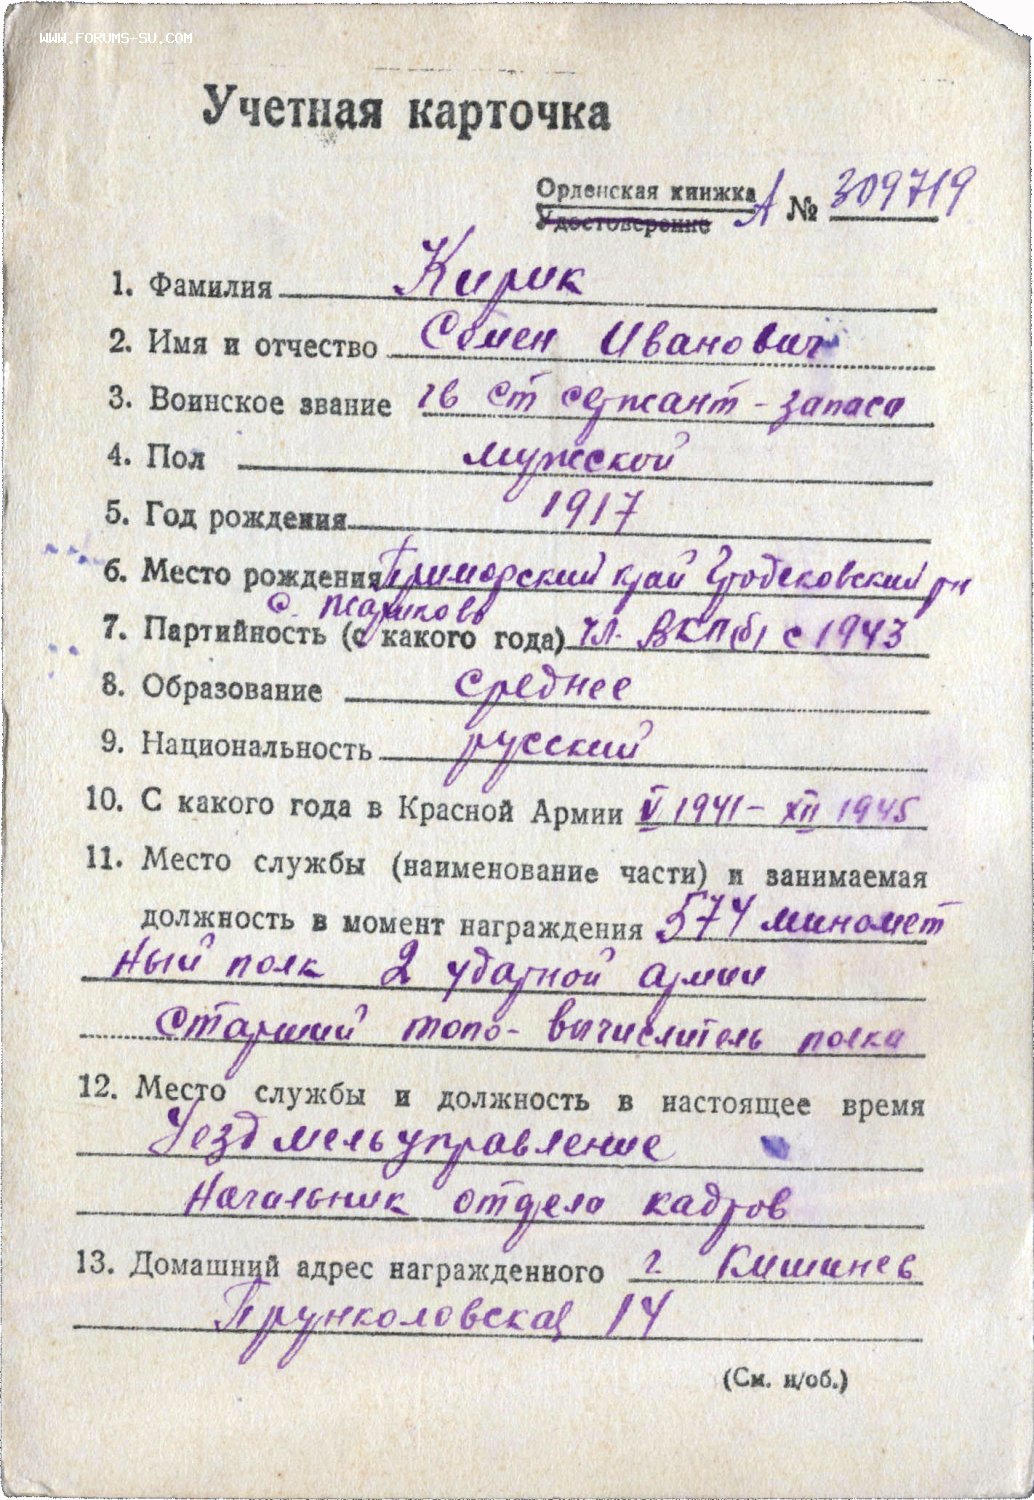 WWW.FORUMS-SU.COM
Учетная карточка
Орденская книжка А № 309719
Удостоверение
1. Фамилия Кирик
2. Имя и отчество Семен Иванович
3. Воинское звание гв ст сержант - запаса
4. Пол мужской
5. Год рождения 1917
6. Место рождения Приморский край Гродековский рн
с. Жариково
7. Партийность (с какого года) чл. ВКП(б) с 1943
8. Образование среднее
9. Национальность русский
10. С какого года в Красной Армии V 1941 - XII 1945
11. Место службы (наименование части) и занимаемая
должность в момент награждения 574 миномет
ный полк 2 ударной армии
старший топо-вычислитель полка
12. Место службы и должность в настоящее время
Уездмельуправление
Начальник отдела кадров
13. Домашний адрес награжденного г. Кишинев
Прунколовская 14
(См. н/об.)